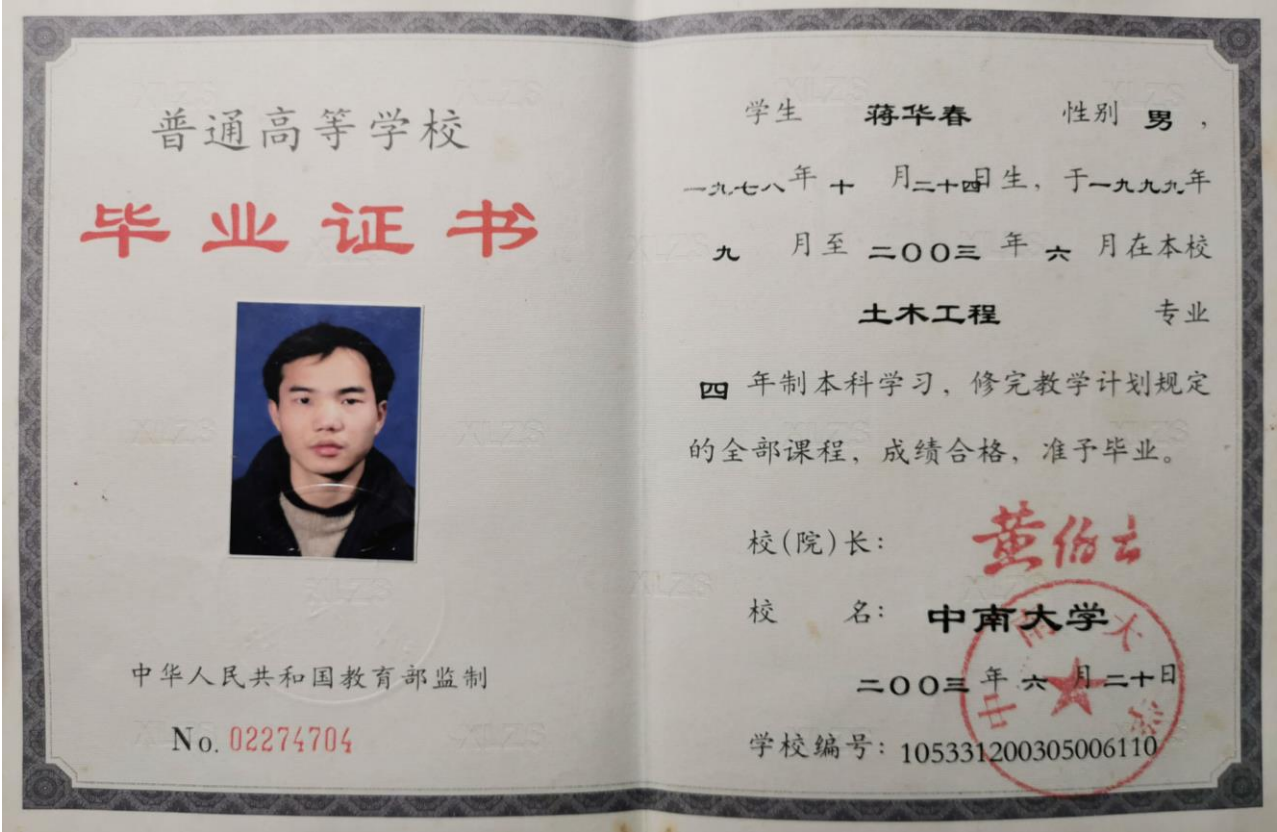 普通高等学校
毕业证书
中华人民共和国教育部监制
No. 02274704
学生 蒋华春 性别 男，
一九七八年 十 月二十四日生，于一九九九年
九 月至 二〇〇三 年 六 月在本校
土木工程 专业
四 年制本科学习，修完教学计划规定
的全部课程，成绩合格，准予毕业。
校(院)长： 黄伯云
校 名： 中南大学
二〇〇三 年 六 月二十日
学校编号：105331200305006110
中南大学
XLZS